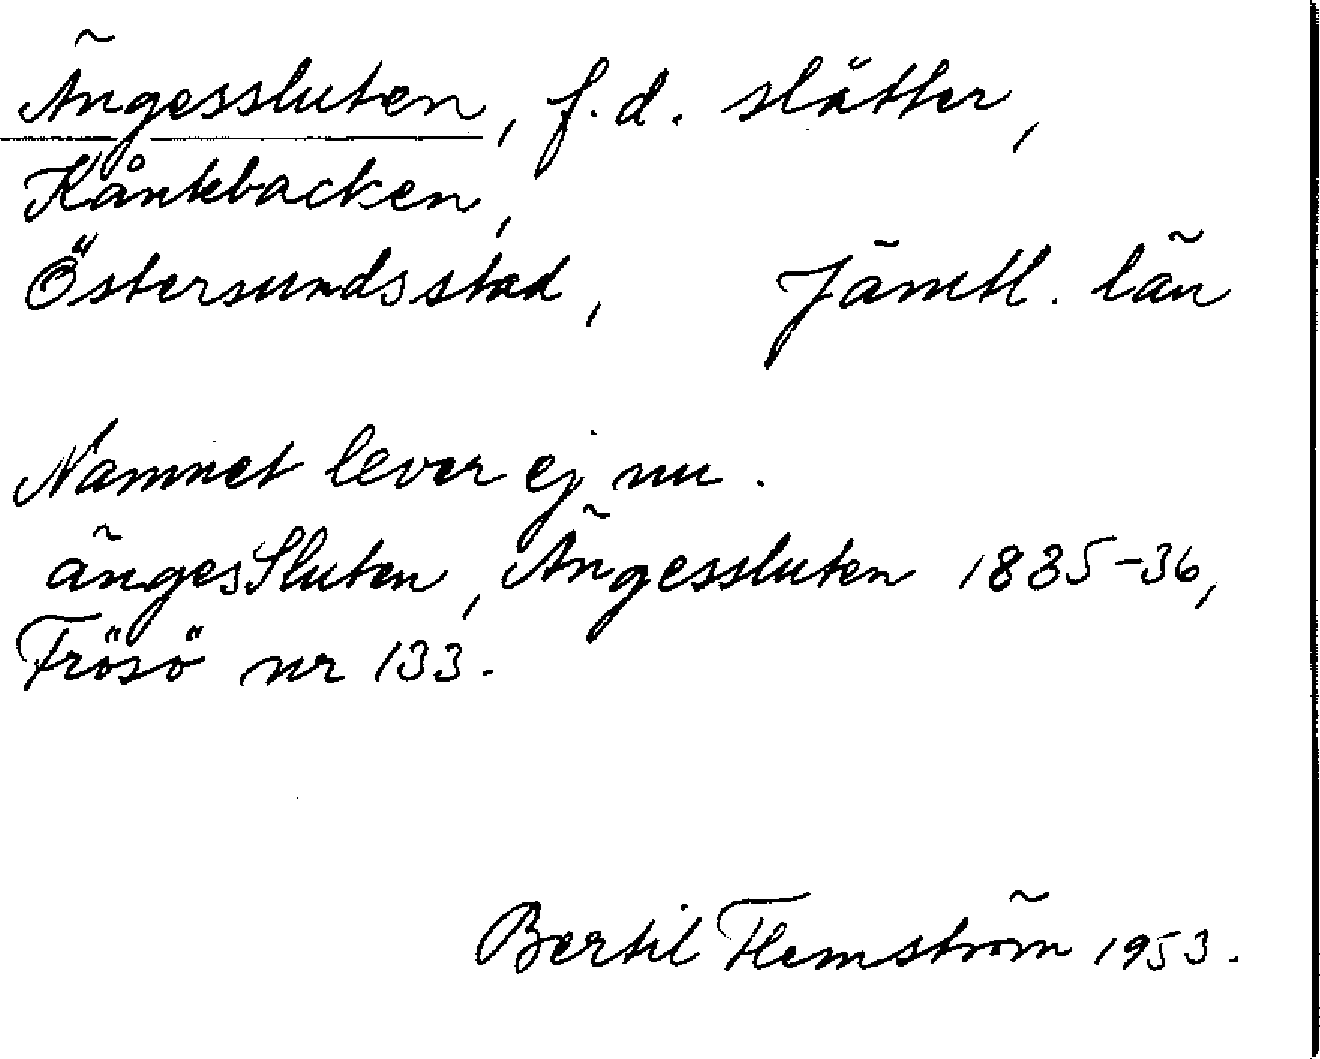 Ängessluten, f.d. slåtter,
Kånkbacken,
Östersunds stad, Jämtl. län
Namnet lever ej nu.
ängesSluten, Ängessluten 1835-36,
Frösö nr 133.
Bertil Flemström 1953.